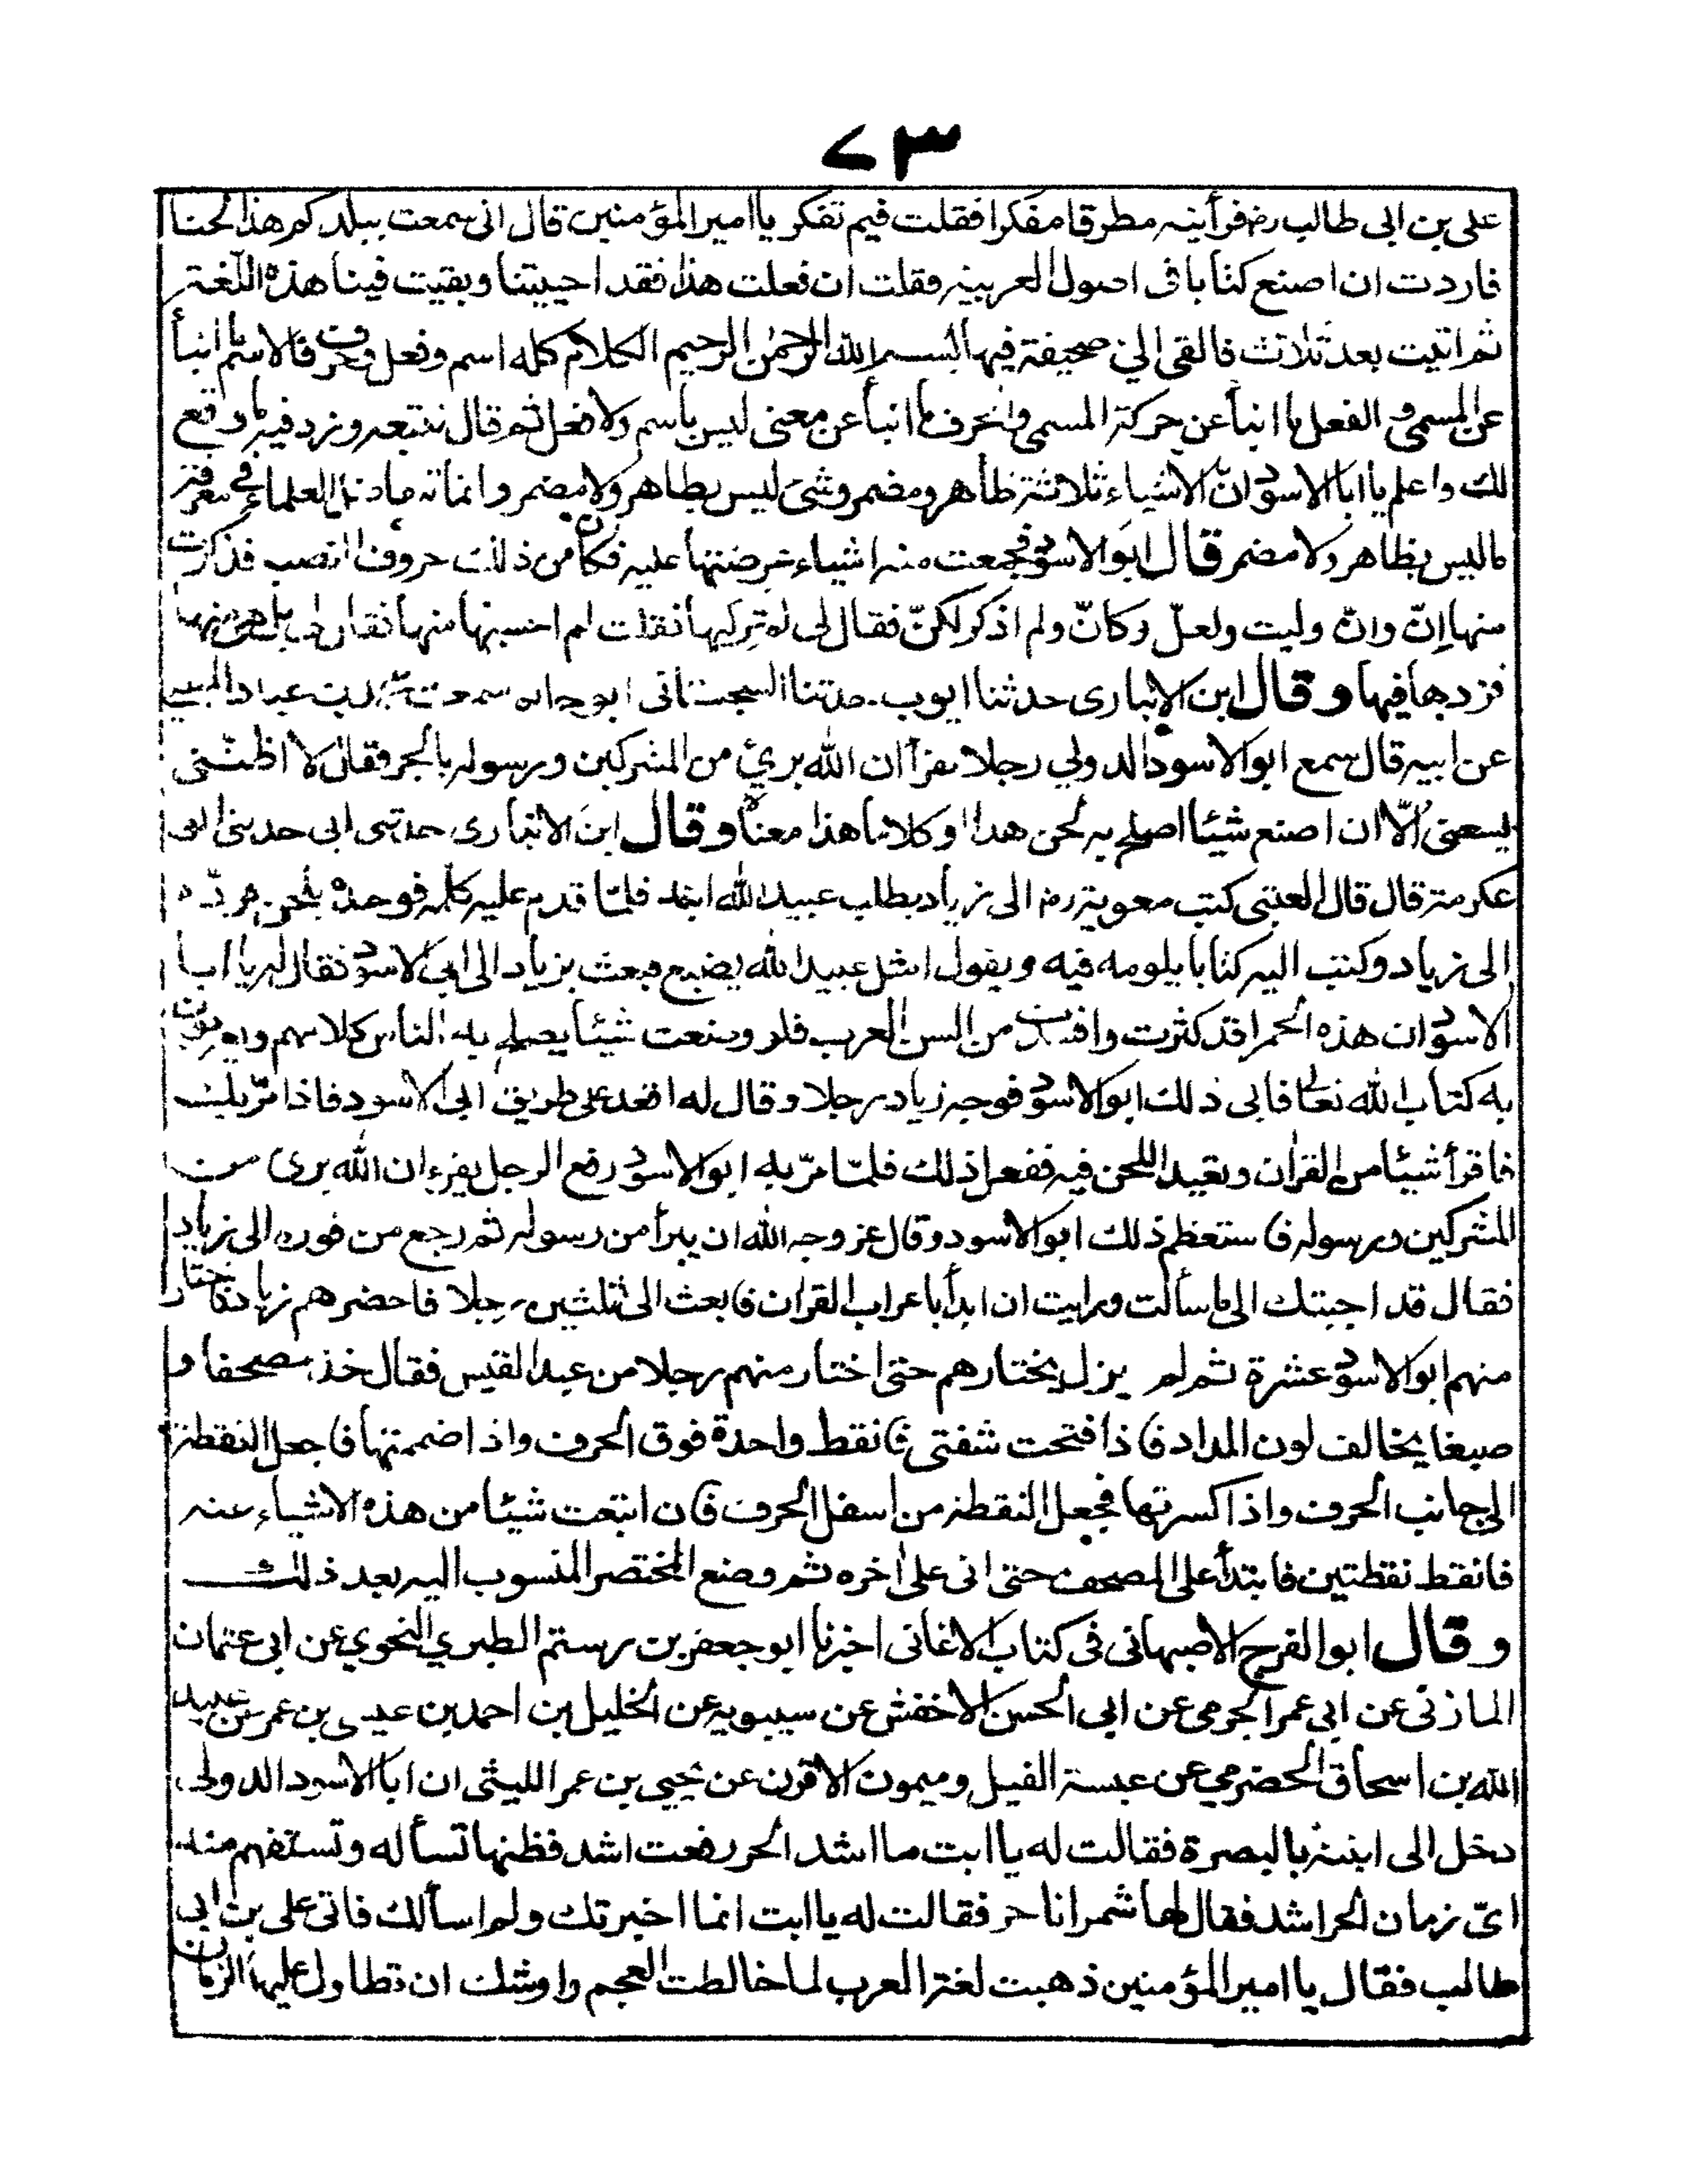 ٧٣
علي بن ابى طالب رض فرأيته مطرقا مفكرا فقلت فيم تفكر يا امير المؤمنين قال انى سمعت ببلدكم هذا لحنا
فاردت ان اصنع كتابا فى اصول العربية فقلت ان فعلت هذا فقد احييتنا وبقيت فينا هذه اللغة
ثم اتيت بعد ثلاث فالقى الي صحيفة فيها بسم الله الرحمن الرحيم الكلام كله اسم وفعل وحرف فالاسم ما انبأ
عن المسمى و الفعل ما انبأ عن حركة المسمى والحرف ما انبأ عن معنى ليس باسم ولا فعل ثم قال تتبعه وزد فيه ما وقع
لك واعلم يا ابا الاسود ان الاشياء ثلاثة ظاهر ومضمر وشىء ليس بظاهر ولا مضمر وانما العلماء فى معرفة
ما ليس بظاهر ولا مضمر قال ابو الاسود فجمعت منه اشياء عرضتها عليه فكان من ذلك حروف النصب فذكرت
منها اِنّ وانّ وليت ولعلّ وكانّ ولم اذكر لكنّ فقال لى لم تركتها فقلت لم احسبها منها فقال بل هى منها
فزدها فيها وقال ابن الانبارى حدثنا ايوب حدثنا السجستانى ابو سمعت بن عباد المهلبى
عن ابيه قال سمع ابو الاسود الدولي رجلا يقرأ ان الله بريئ من المشركين ورسوله بالجر فقال لا اظنّنى
يسعنى الّا ان اصنع شيئا اصلح به لحن هذا او كلاما هذا معناه وقال ابن الانبارى حدثنى ابى حدثنى ابى
عكرمة قال قال العتبى كتب معوية رض الى زياد يطلب عبيد الله ابنه فلمّا قدم عليه كلمه فوجده يلحن فردّه
الى زياد وكتب اليه كتابا يلومه فيه ويقول امثل عبيد الله يضيع فبعث زياد الى ابى الاسود فقال له يا ابا
الاسود ان هذه الحمرا قد كثرت وافسدت من السن العرب فلو وضعت شيئا يصلح به الناس كلامهم ويعربون
به كتاب الله تعالى فابى ذلك ابو الاسود فوجه زياد رجلا وقال له اقعد على طريق ابى الاسود فاذا مرّ بك
فاقرأ شيئا من القران وتعيد اللحن فيه ففعل ذلك فلمّا مرّ به ابو الاسود رفع الرجل يقرء ان الله برى من
المشركين ورسوله فاستعظم ذلك ابو الاسود وقال عز وجه الله ان يبرأ من رسوله ثم رجع من فوره الى زياد
فقال قد اجبتك الى ما سألت ورايت ان ابدأ باعراب القران فابعث الى ثلثين رجلا فاحضرهم زياد فاختار
منهم ابو الاسود عشرة ثم لم يزل يختارهم حتى اختار منهم رجلا من عبد القيس فقال خذ مصحفا و
صبغا يخالف لون المداد فاذا فتحت شفتى فانقط واحدة فوق الحرف واذا ضممتها فاجعل النقطة
الى جانب الحرف واذا كسرتها فجعل النقطة من اسفل الحرف فان اتبعت شيئا من هذه الاشياء غنه
فانقط نقطتين فابتدأ على المصحف حتى اتى على اخره ثم وضع المختصر المنسوب اليه بعد ذلك
وقال ابو الفرج الاصبهانى فى كتاب الاغانى اخبرنا ابو جعفر بن رستم الطبري النحوي عن ابى عثمان
المازنى عن ابى عمر الجرمى عن ابى الحسن الاخفش عن سيبويه عن الخليل بن احمد بن عيسى بن عمر عن عبد
الله بن اسحاق الحضرمي عن عبسة الفيل وميمون الاقرن عن يحيى بن عمر الليثى ان ابا الاسود الدولى
دخل الى ابنته بالبصرة فقالت له يا ابت ما اشد الحر رفعت اشد فظنها تسأله وتستفهم منه
اىّ زمان الحر اشد فقال لها شهرا ناجر فقالت له يا ابت انما اخبرتك ولم اسألك فاتى على بن ابى
طالب فقال يا امير المؤمنين ذهبت لغة العرب لما خالطت العجم واوشك ان تطاول عليها الزمان